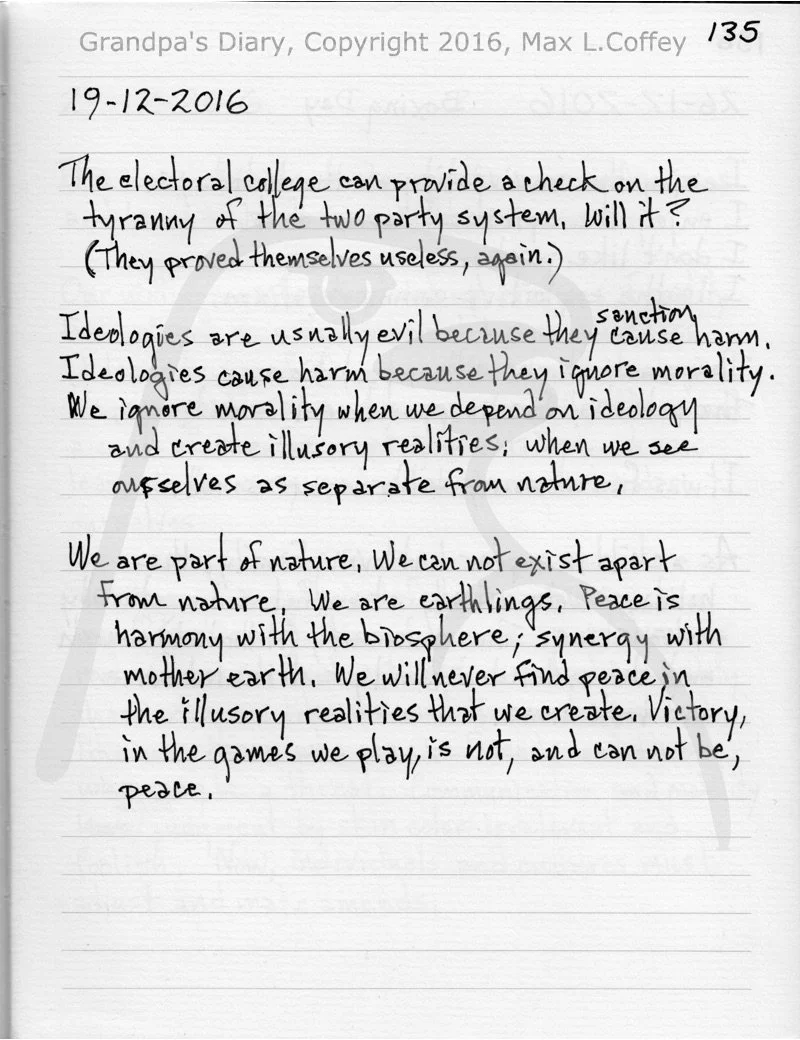 135
Grandpa's Diary, Copyright 2016, Max L.Coffey
19-12-2016
The electoral college can provide a check on the
tyranny of the two party system. Will it?
(They proved themselves useless, again.)
sanction
Ideologies are usually evil because they cause harm.
Ideologies cause harm because they ignore morality.
We ignore morality when we depend on ideology
and create illusory realities; when we see
ourselves as separate from nature.
We are part of nature. We can not exist apart
from nature. We are earthlings. Peace is
harmony with the biosphere; synergy with
mother earth. We will never find peace in
the illusory realities that we create. Victory,
in the games we play, is not, and can not be,
peace.